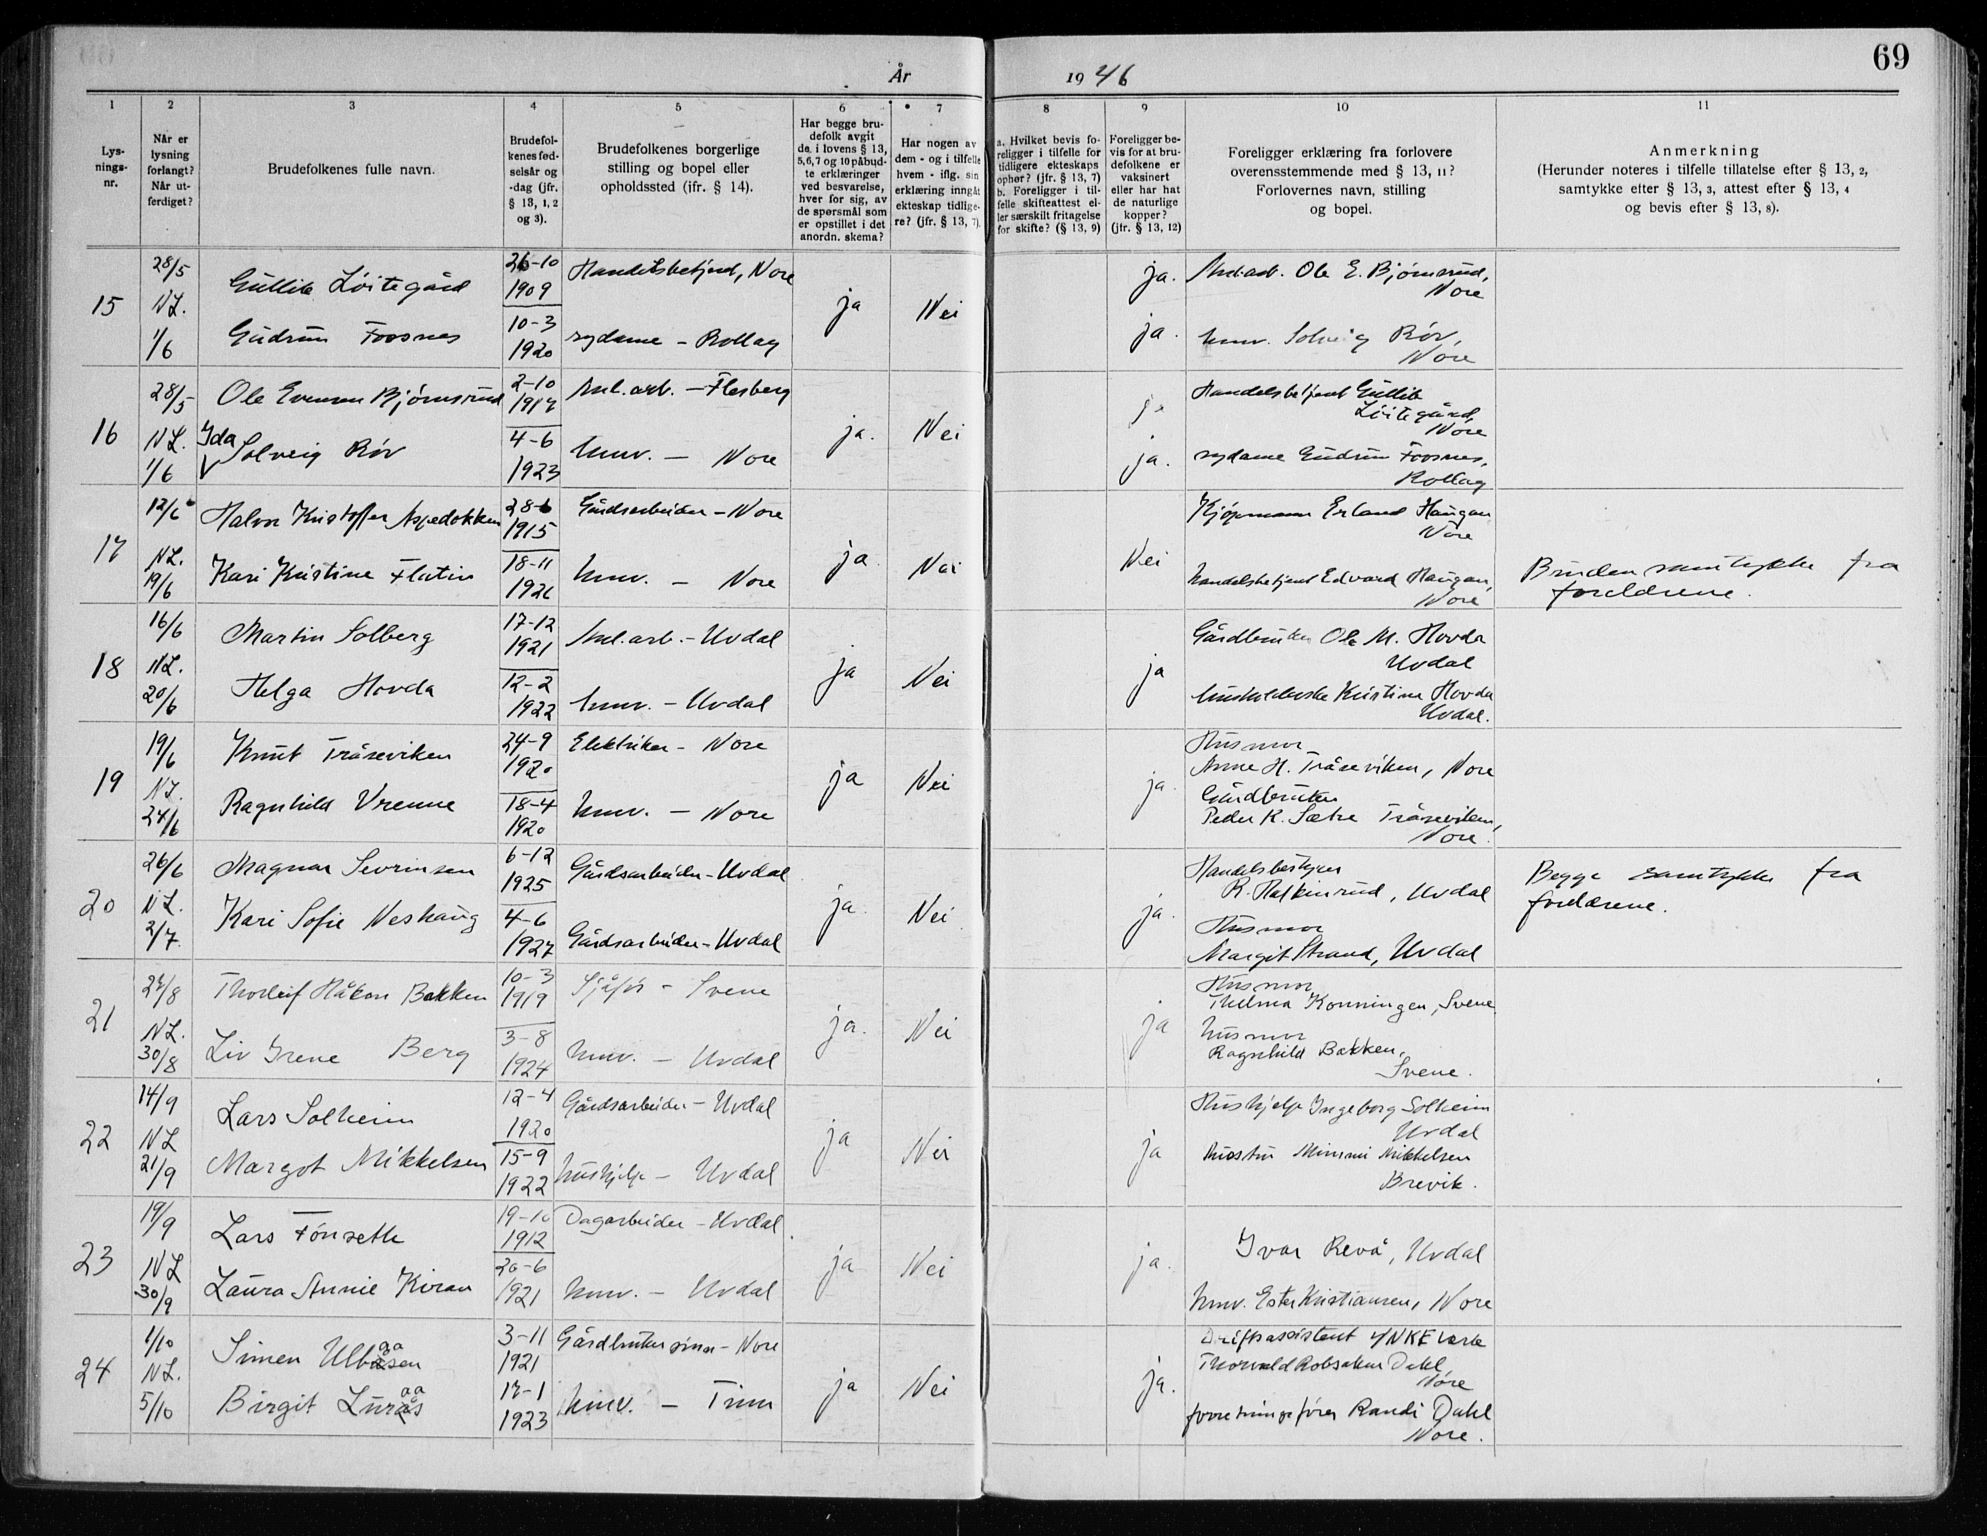 69
År 1946
1 2 3 4 5 6 7 8 9 10 11
Lys-
nings-
nr.
Når er
lysning
forlangt?
Når ut-
ferdiget?
Brudefolkenes fulle navn.
Brudefol-
kenes fød-
selsår og
-dag (jfr.
§ 13, 1, 2
og 3).
Brudefolkenes borgerlige
stilling og bopel eller
opholdssted (ifr. § 14).
Har begge bru-
defolk avgit
de i lovens § 13,
5,6,7 og 10 påbud-
te erklæringer
ved besvarelse,
hver for sig, av
de spørsmål som
er opstillet i det
anordn. skema?
Har nogen av
dem - og i tilfelle
hvem - iflg. sin
erklæring inngått
ekteskap tidlige-
re? (jfr. § 13, 7).
a. Hvilket bevis fo-
religger i tilfelle for
tidligere ekteskaps
ophør? (jfr. § 13, 7)
b. Foreligger i til-
felle skifteattest el-
ler særskilt fritagelse
for skifte? (§ 13, 9)
Foreligger be-
vis for at bru-
defolkene er
vaksinert
eller har hat
de naturlige
kopper?
(jfr. § 13, 12)
Foreligger erklæring fra forlovere
overensstemmende med § 13, 11?
Forlovernes navn, stilling
og bopel.
Anmerkning
(Herunder noteres i tilfelle tillatelse efter § 13, 2,
samtykke efter § 13, 3, attest efter § 13, 4
og bevis efter § 13, 8).
15
28/5
NL.
1/6
Gullik Löitegård
Gudrun Fossnes
26-10
1909
10-3
1920
Handelsbetjent, Nore
sydame - Rollag
ja
Nei
ja.
ja.
Anl.arb. Ole E. Bjørnsrud,
Nore
hmv. Solveig Röv,
Nore
16
28/5
NL.
1/6
Ole Evensen Bjørnsrud
Ida
V Solveig Röv
2-10
1917
4-6
1923
Anl.arb. - Flesberg
hmv. - Nore
ja.
Nei
ja
ja.
Handelsbetjent Gullik
Löitegård,
Nore
sydame Gudrun Fossnes,
Rollag
17
12/6
NL.
19/6
Halvor Kristoffer Aspedokken
Kari Kristine Flatin
28-6
1915
18-11
1926
Gårdsarbeider - Nore
hmv. - Nore
ja
Nei
Nei
Kjøpmann Erland Haugan
Nore
handelsbetjent Edvard Haugan,
Nore
Bruden samtykke fra
foreldrene.
18
16/6
NL.
20/6
Martin Solberg
Helga Hovda
17-12
1921
12-2
1922
Anl.arb. - Uvdal
hmv. - Uvdal
ja
Nei
ja
Gårdbruker Ole M. Hovda
Uvdal
husholderske Kristine Hovda
Uvdal.
19
19/6
NL.
24/6
Knut Tråseviken
Ragnhild Vrenne
24-9
1920
18-4
1920
Elektriker - Nore
hmv. - Nore
ja
Nei
ja.
Husmor
Anne H. Tråseviken, Nore
Gårdbruker
Peder K. Sætre Tråseviken,
Nore.
20
26/6
NL.
2/7.
Magnar Sevrinsen
Kari Sofie Neshaug
6-12
1925
4-6
1927
Gårdsarbeider - Uvdal
Gårdsarbeider - Uvdal
ja.
Nei
ja.
Handelsbestyrer
R. Halkinrud, Uvdal
Husmor
Margit Strand, Uvdal
Begge samtykke fra
foreldrene.
21
27/8
NL.
30/8
Thorleif Håkon Bakken
Liv Irene Berg
10-3
1919
3-8
1924
Sjåfør - Svene
hmv. - Uvdal
ja.
Nei
ja
Husmor
Thelma Konningen, Svene
husmor
Ragnhild Bakken,
Svene.
22
14/9
NL
21/9
Lars Solheim
Margot Mikkelsen
12-4
1920
15-9
1922
Gårdsarbeider - Uvdal
hushjelp - Uvdal
ja
Nei
ja
Hushjelp Ingeborg Solheim
Uvdal
Mimmi Mikkelsen
Brevik.
23
19/9
NL
30/9
Lars Fönseth
Laura Annie Kiran
19-10
1912
20-6
1921
Dagarbeider - Uvdal
hmv. - Uvdal
ja
Nei
ja.
Ivar Revå, Uvdal
hmv. Ester Kristiansen, Nore
24
1/10
NL.
5/10
aa
Simen Ulbåsen
aa
Birgit Lurås
3-11
1921
17-1
1923
Gårdbrukersønn - Nore
hmv. - Tinn
ja
Nei
ja.
Driftsassistent v/NKE verk
Thorvald Robsahm Dahl,
Nore
forretningsfører Randi Dahl
Nore.